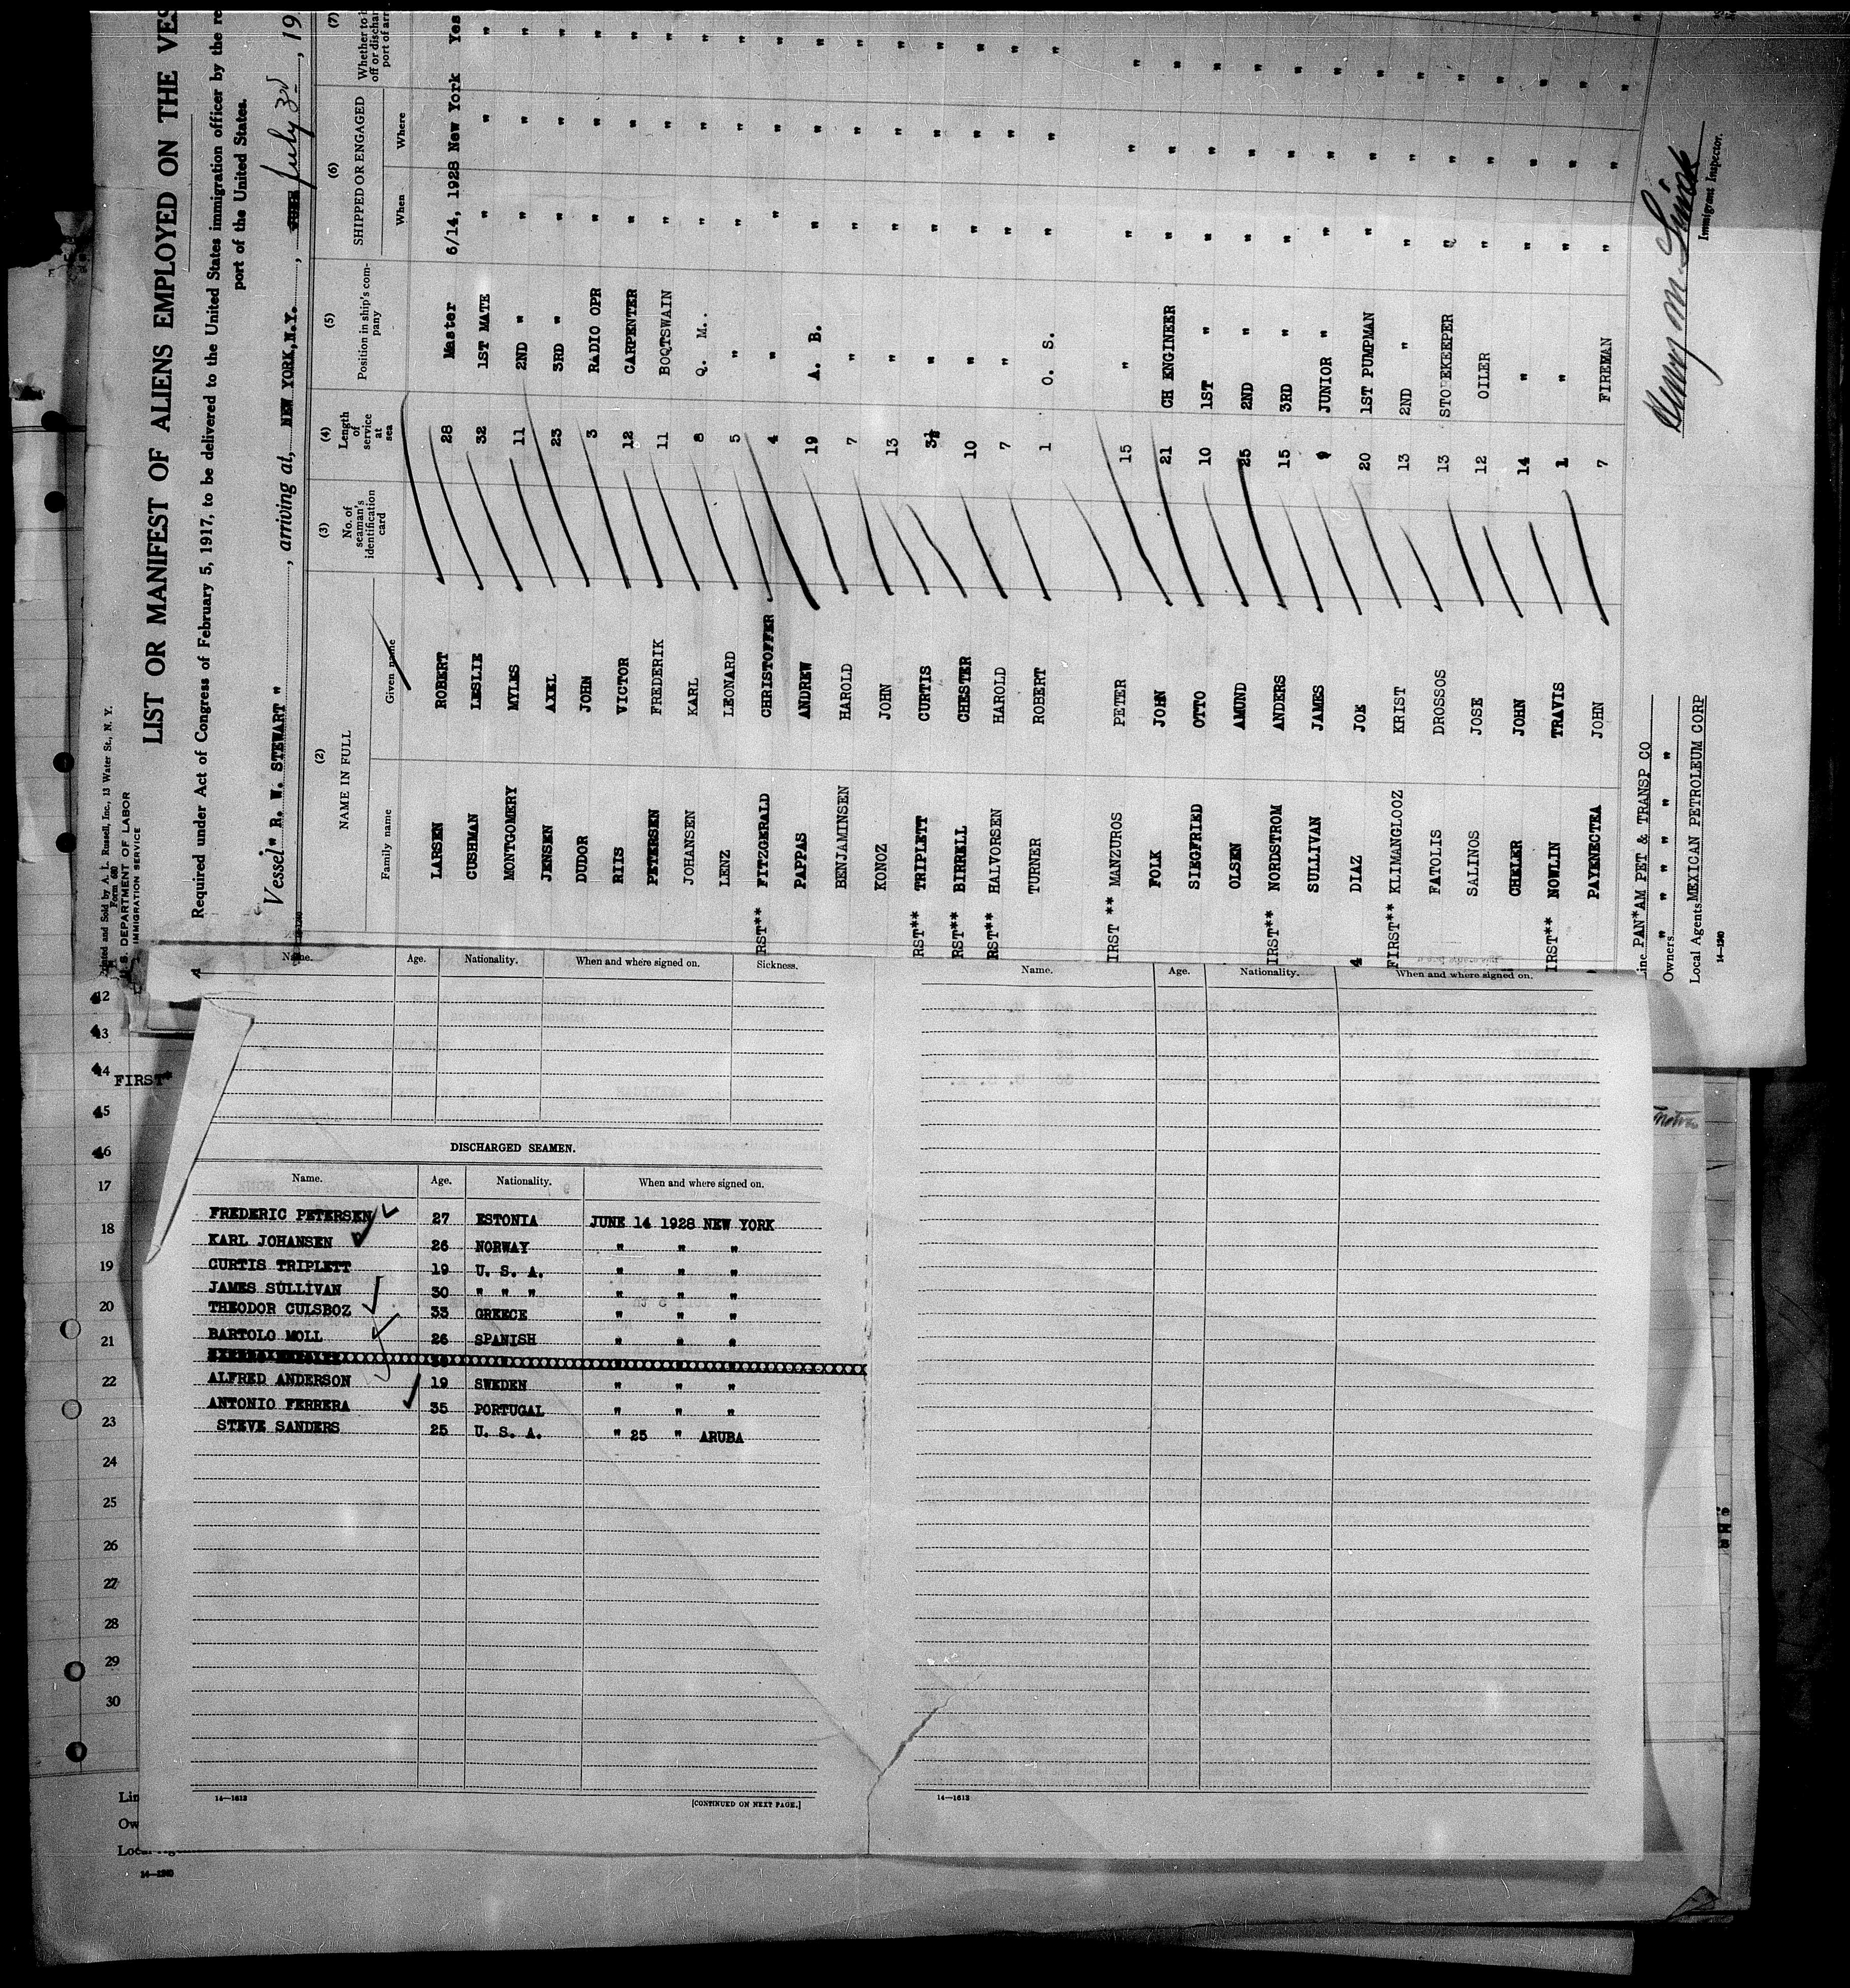 Printed and Sold by A. L. Russell, Inc., 13 Water St., N. Y.
Form 680
U. S. DEPARTMENT OF LABOR
IMMIGRATION SERVICE
LIST OR MANIFEST OF ALIENS EMPLOYED ON THE VES
Required under Act of Congress of February 5, 1917, to be delivered to the United States immigration officer by the re
port of the United States.
Vessel " R. W. STEWART " , arriving at, NEW YORK, N.Y. , July 3rd , 19
(2) (3) (4) (5) (6) (7)
NAME IN FULL No. of seaman's identification card Length of service at sea Position in ship's company SHIPPED OR ENGAGED
Whether to b
off or dischar
port of arr
Family name Given name When Where
LARSEN ROBERT 28 Master 6/14, 1928 New York Yes
CUSHMAN LESLIE 32 1ST MATE " " "
MONTGOMERY MYLES 11 2ND " " " "
JENSEN AXEL 23 3RD " " " "
DUDOR JOHN 3 RADIO OPR " " "
RIIS VICTOR 12 CARPENTER " " "
PETERSEN FREDERIK 11 BOQTSWAIN " " "
JOHANSEN KARL 8 Q. M.. " " "
LENZ LEONARD 5 " " " "
RST** FITZGERALD CHRISTOFFER 4 " " " "
PAPPAS ANDREW 19 A. B. " " "
BENJAMINSEN HAROLD 7 " " " "
KONOZ JOHN 13 " " " "
RST** TRIPLETT CURTIS 3½ " " " "
RST** BIRRELL CHESTER 10 " " " "
RST** HALVORSEN HAROLD 7 " " " "
TURNER ROBERT 1 O. S. " " "
IRST ** MANZUROS PETER 15 " " " "
FOLK JOHN 21 CH ENGINEER " " "
SIEGFRIED OTTO 10 1ST " " " "
OLSEN AMUND 25 2ND " " " "
IRST** NORDSTROM ANDERS 15 3RD " " " "
SULLIVAN JAMES 9 JUNIOR " " " "
4 DIAZ JOE 20 1ST PUMPMAN " " "
FIRST** KLIMANGLOOZ KRIST 13 2ND " " " "
FATOLIS DROSSOS 13 STOREKEEPER " " "
SALINOS JOSE 12 OILER " " "
CHELER JOHN 14 " " " "
IRST** NOWLIN TRAVIS 1 " " " "
PAYENECTEA JOHN 7 FIREMAN " " "
Line PAN*AM PET & TRANSP CO
Owners " " " " " "
Local Agents MEXICAN PETROLEUM CORP
14-1240
Immigrant Inspector.
12
13
14
FIRST*
15
16
17
18
19
20
21
22
23
24
25
26
27
28
29
30
Lin
Ow
14-1240
Name. Age. Nationality. When and where signed on. Sickness.
DISCHARGED SEAMEN.
Name. Age. Nationality. When and where signed on.
FREDERIC PETERSEN 27 ESTONIA JUNE 14 1928 NEW YORK
KARL JOHANSEN 26 NORWAY " " "
CURTIS TRIPLETT 19 U. S. A. " " "
JAMES SULLIVAN 30 " " " " " "
THEODOR CULSBOZ 33 GREECE " " "
BARTOLO MOLL 26 SPANISH " " "
ALFRED ANDERSON 19 SWEDEN " " "
ANTONIO FERRERA 35 PORTUGAL " " "
STEVE SANDERS 25 U. S. A. " 25 " ARUBA
14—1613
[CONTINUED ON NEXT PAGE.]
Name. Age. Nationality. When and where signed on.
14—1613